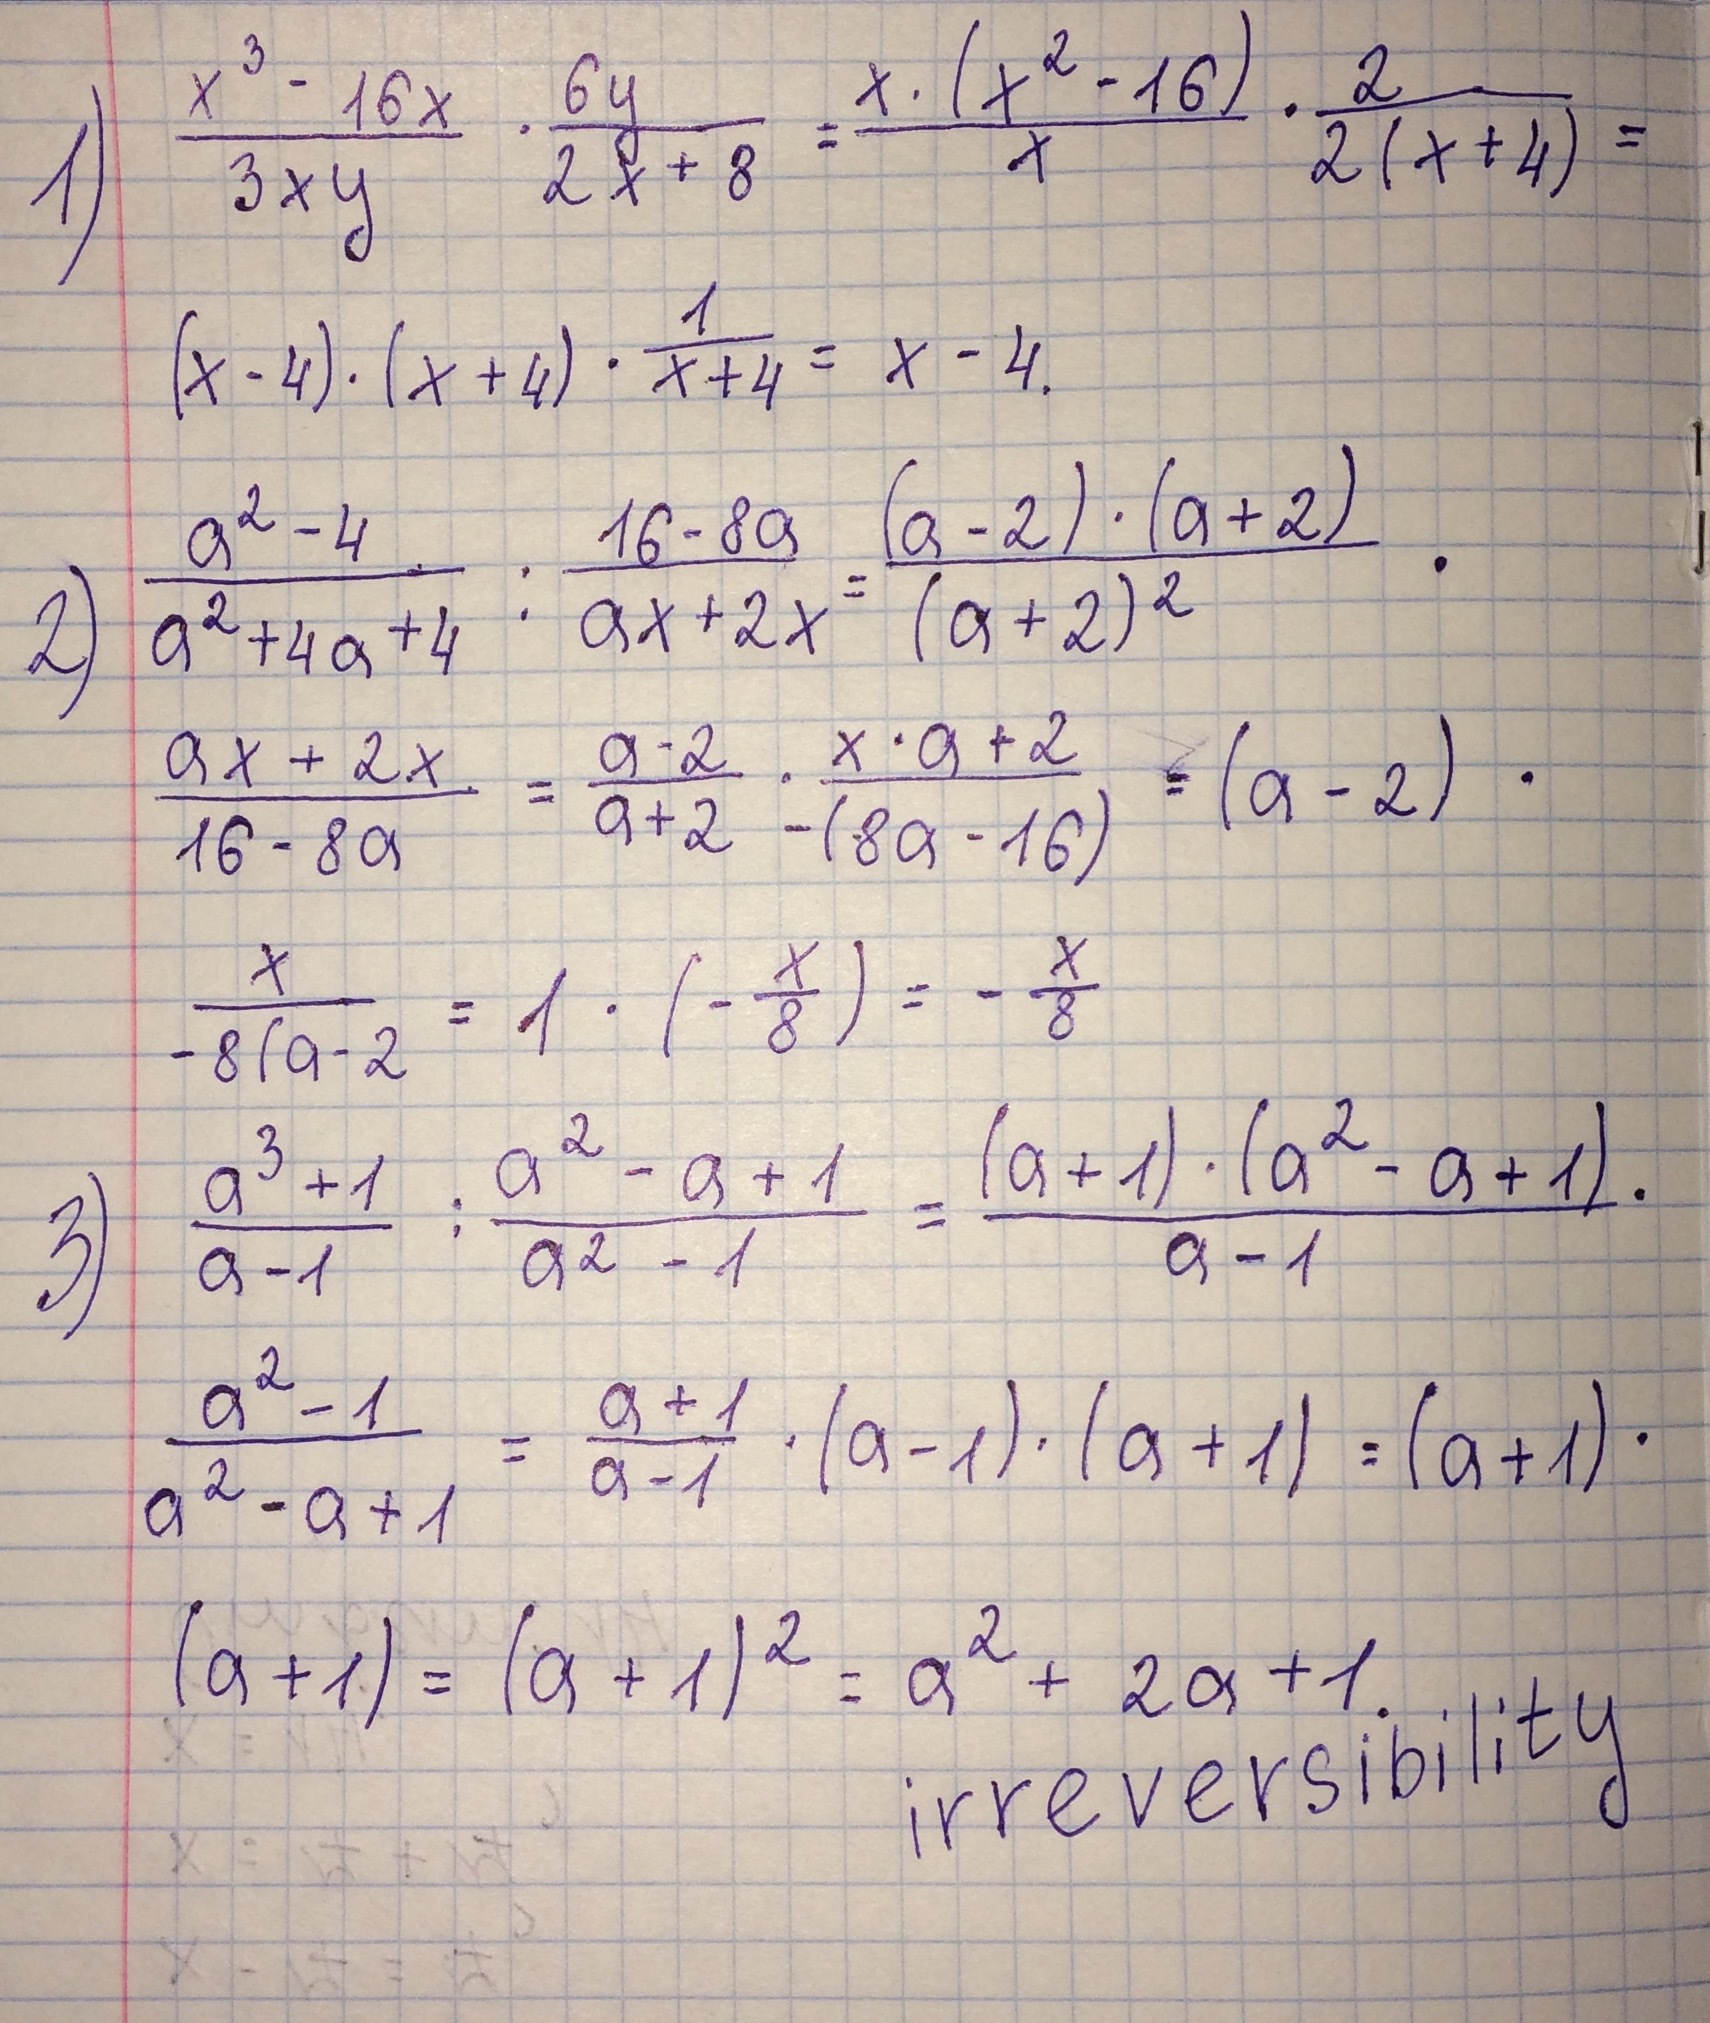 1) x³ - 16x / 3xy · 6y / 2x + 8 = x · (x² - 16) / x · 2 / 2(x + 4) =
(x - 4) · (x + 4) · 1 / x + 4 = x - 4.
2) a² - 4 / a² + 4a + 4 : 16 - 8a / ax + 2x = (a - 2) · (a + 2) / (a + 2)² ·
ax + 2x / 16 - 8a = a - 2 / a + 2 · x · a + 2 / -(8a - 16) = (a - 2) ·
x / -8(a - 2 = 1 · (- x / 8) = - x / 8
3) a³ + 1 / a - 1 : a² - a + 1 / a² - 1 = (a + 1) · (a² - a + 1) / a - 1 ·
a² - 1 / a² - a + 1 = a + 1 / a - 1 · (a - 1) · (a + 1) = (a + 1) ·
(a + 1) = (a + 1)² = a² + 2a + 1.
irreversibility